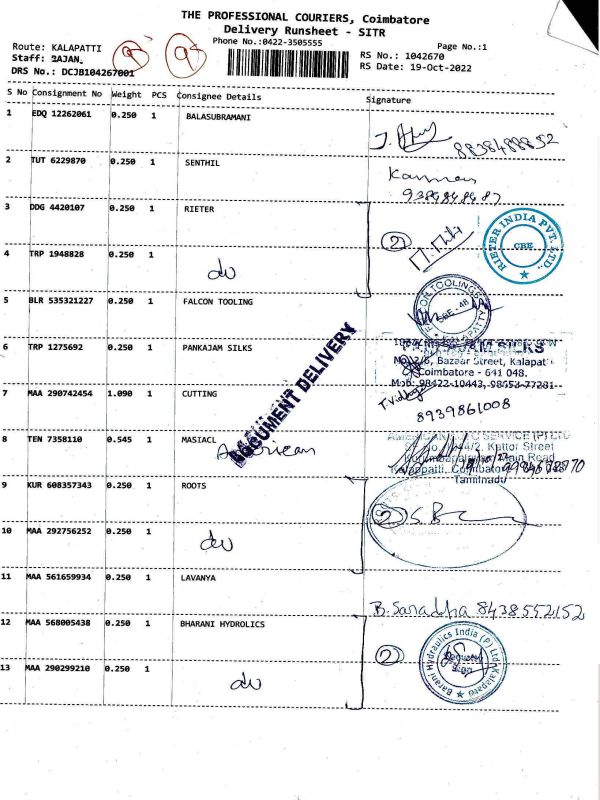 THE PROFESSIONAL COURIERS, Coimbatore
Delivery Runsheet - SITR
Phone No.:0422-3505555
Page No.:1
Route: KALAPATTI
Staff: RAJAN.
DRS No.: DCJB104267001
RS No.: 1042670
RS Date: 19-Oct-2022
S No Consignment No Weight PCS Consignee Details Signature
1 EDQ 12262061 0.250 1 BALASUBRAMANI
8838488852
2 TUT 6229870 0.250 1 SENTHIL
Kannan
3 DDG 4420107 0.250 1 RIETER
2
RIETER INDIA PVT. LTD.,
CBE.
4 TRP 1948828 0.250 1
do
5 BLR 535321227 0.250 1 FALCON TOOLING
6 TRP 1275692 0.250 1 PANKAJAM SILKS
SILKS
No. 2/6, Bazaar Street, Kalapatti
Coimbatore - 641 048.
Mob: 98422-10443, 98653-77281
DOCUMENT DELIVERY
7 MAA 290742454 1.090 1 CUTTING
8939861008
8 TEN 7358110 0.545 1 MASIACL
American
Kattor Street
Main Road
Tamilnadu
9 KUR 608357343 0.250 1 ROOTS
2 S.B
10 MAA 292756252 0.250 1
do
11 MAA 561659934 0.250 1 LAVANYA
B. Saradha 8438552152
12 MAA 568005438 0.250 1 BHARANI HYDROLICS
2
Barani Hydraulics India (P) Ltd
13 MAA 290299210 0.250 1
do